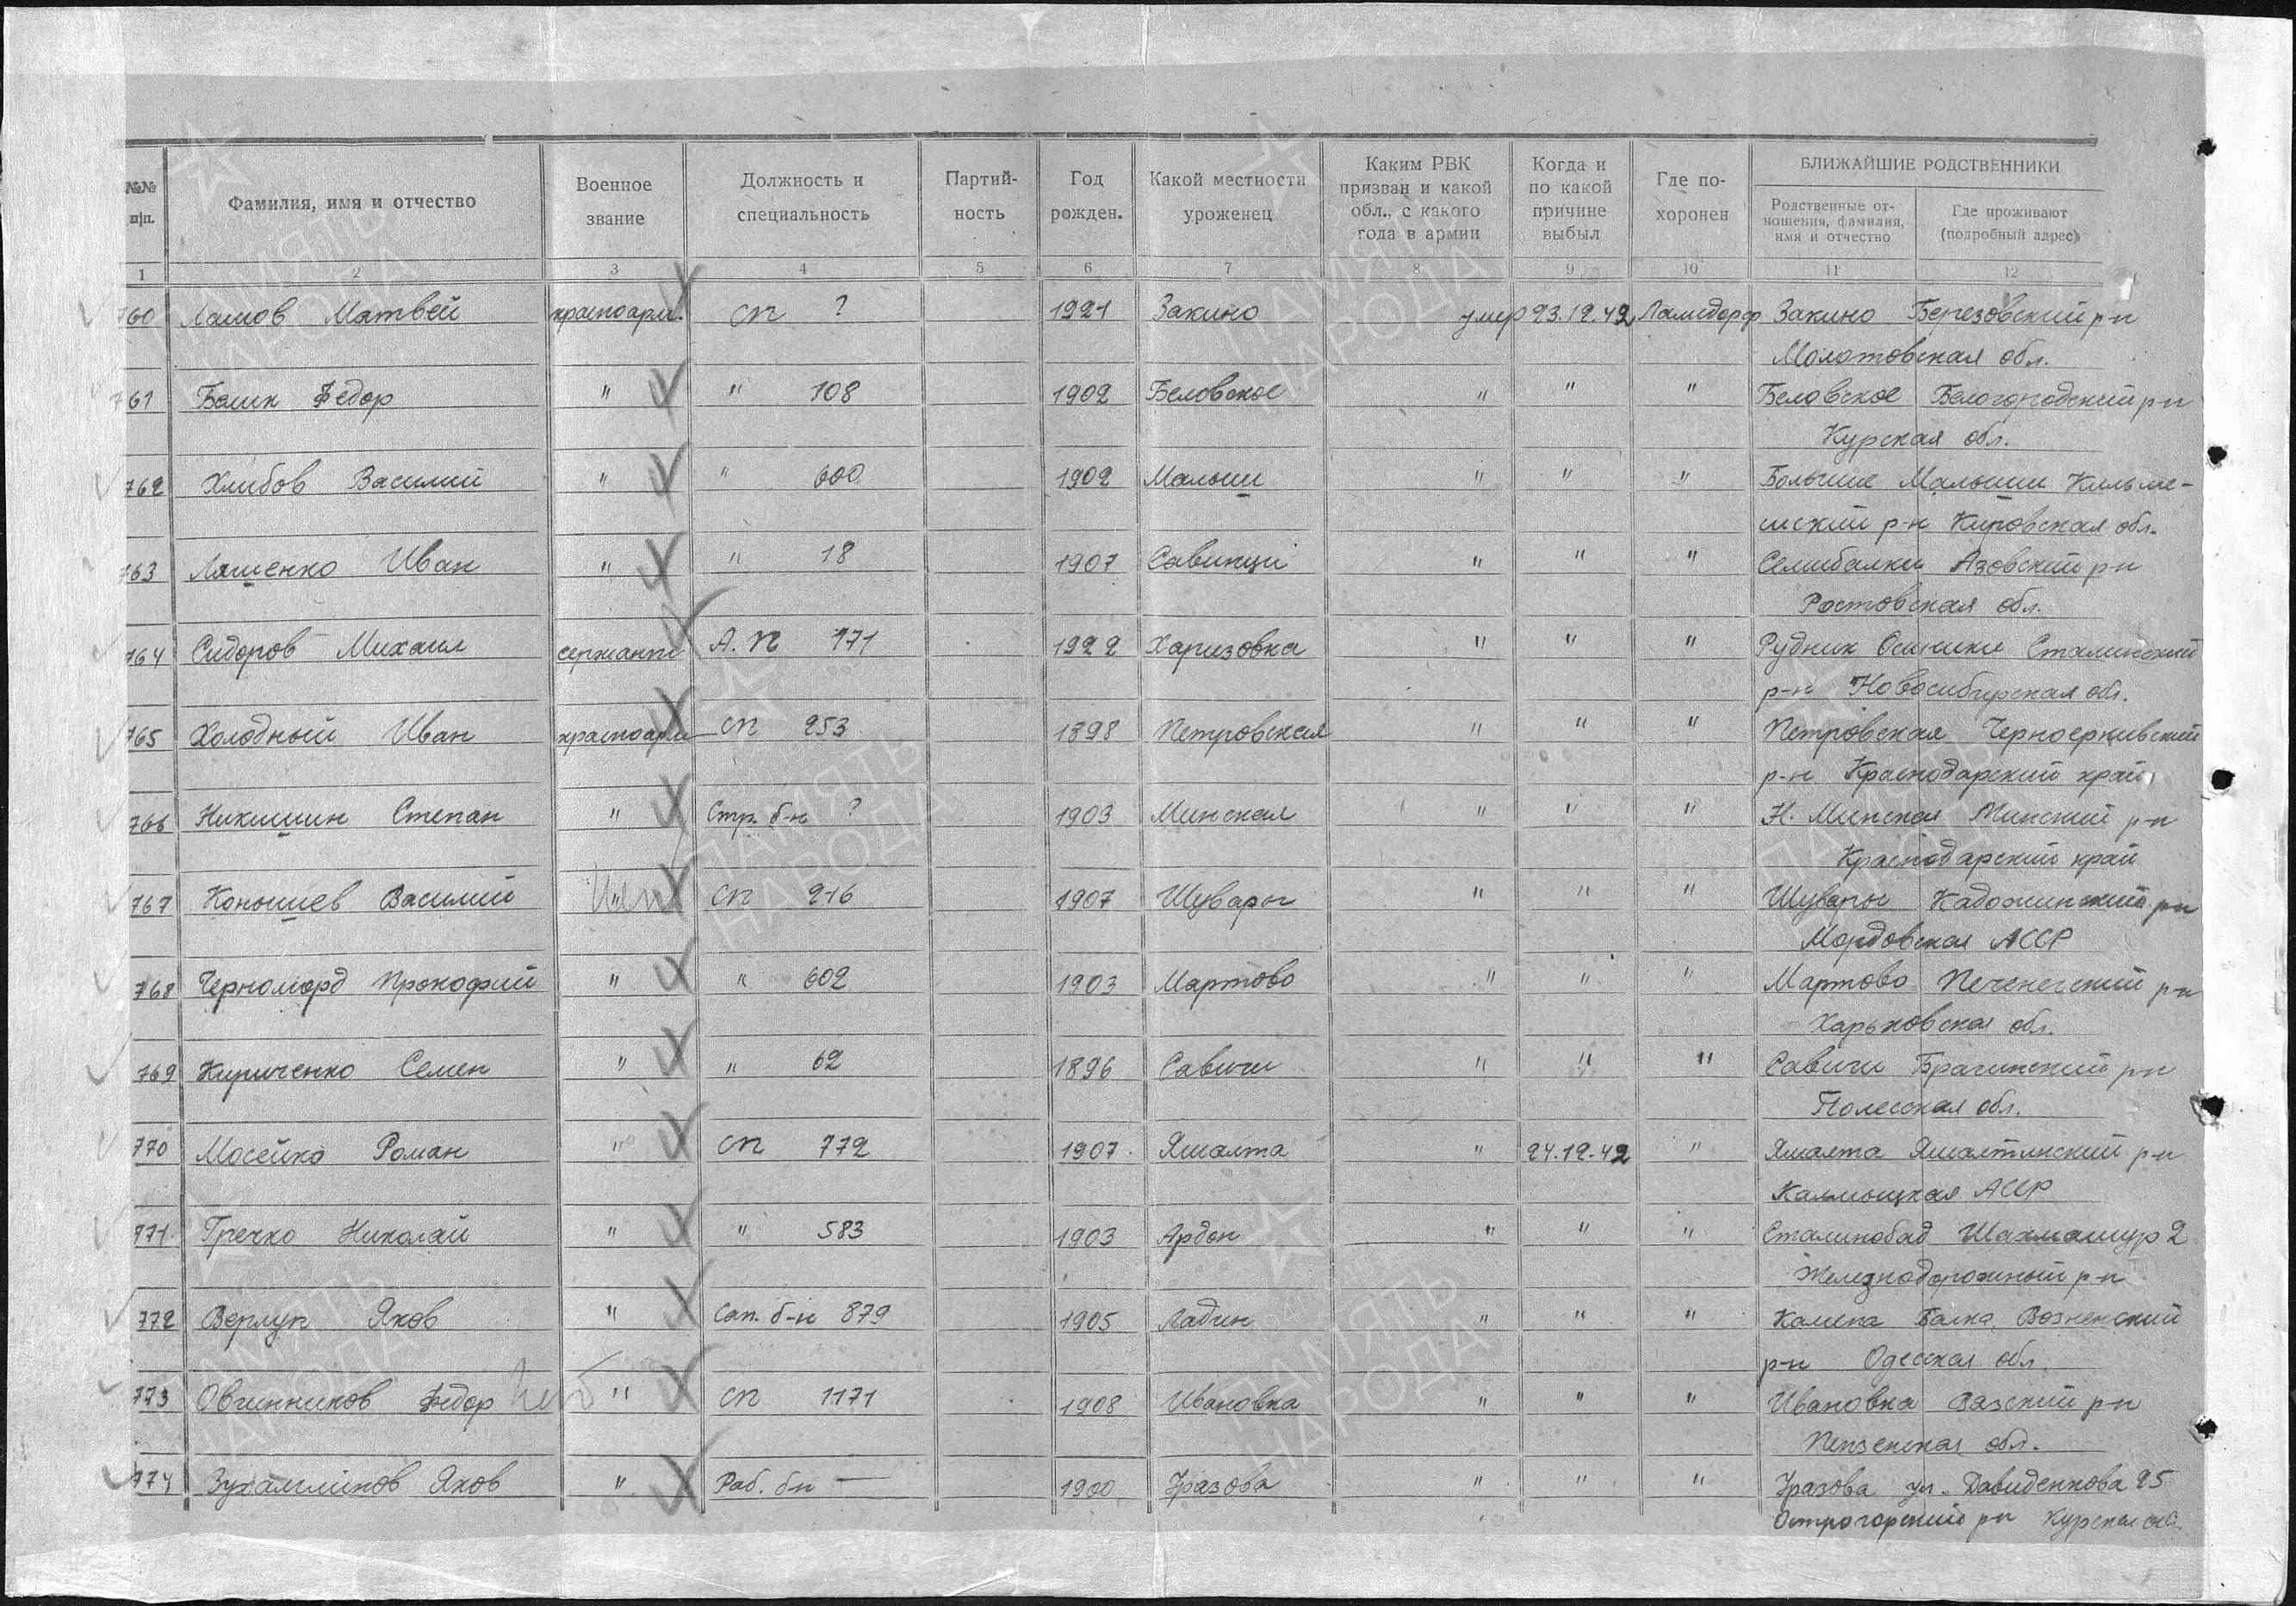 №№ п/п.
Фамилия, имя и отчество
Военное звание
Должность и специальность
Партий-ность
Год рожден.
Какой местности уроженец
Каким РВК призван и какой обл., с какого года в армии
Когда и по какой причине выбыл
Где по-хоронен
БЛИЖАЙШИЕ РОДСТВЕННИКИ
Родственные от-ношения, фамилия, имя и отчество
Где проживают (подробный адрес)
1 2 3 4 5 6 7 8 9 10 11 12
760 Лашов Матвей красноарм. СП ? 1921 Закино умер 23.12.42 Ламсдорф Закино Березовский р-н
Молотовская обл.
761 Белик Федор " " 108 1902 Беловское " " " Беловское Белогородский р-н
Курская обл.
762 Хлибов Василий " " 600 1902 Малыши " " " Большие Малыши Кильме-
шский р-н Кировская обл.
763 Ляшенко Иван " " 18 1907 Савинцi " " " Семибалки Азовский р-н
Ростовская обл.
764 Сидоров Михаил сержант А.П 171 1922 Харизовка " " " Рудник Осиники Сталинский
р-н Новосибирская обл.
765 Холодный Иван красноарм СП 253 1898 Петровская " " " Петровская Черноерковский
р-н Краснодарский край
766 Никишин Степан " Стр. б-н ? 1903 Минская " " " Н. Минская Минский р-н
Краснодарский край
767 Конышев Василий " СП 216 1907 Шувары " " " Шувары Кадошинский р-н
Мордовская АССР
768 Черноморд Прокофий " " 602 1903 Мартово " " " Мартово Печенегский р-н
Харьковская обл.
769 Кириченко Семен " " 62 1896 Савичи " " " Савичи Брагинский р-н
Полесская обл.
770 Мосейко Роман " СП 772 1907 Яшалта " 24.12.42 " Яшалта Яшалтинский р-н
Калмыцкая АССР
771 Гречко Николай " " 583 1903 Ардон " " " Сталинобад Шахмашур 2
Железнодорожный р-н
772 Верлуп Яков " Сап. б-н 879 1905 Ладин " " " Камена Балка Вознесский
р-н Одесская обл.
773 Овчинников Федор " СП 1171 1908 Ивановка " " " Ивановка р-н
Пензенская обл.
774 Яков " Раб. бн — 1900 Уразова " " " Уразова ул. Давиденкова 25
Острогорский рн Курская обл.
ПАМЯТЬ НАРОДА